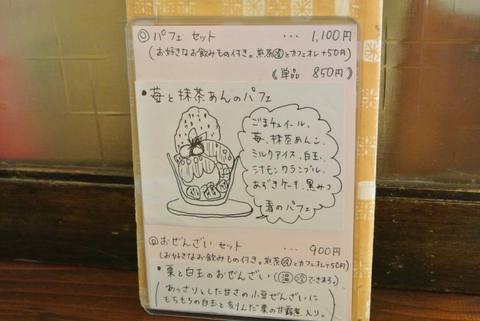 ◎ パフェ セット ･･･ 1,100円
(お好きなお飲みもの付き。煎茶冷とカフェオレ+50円)
《単品 850円》
・苺と抹茶あんのパフェ
ごまチュイール、
苺、抹茶あんこ、
ミルクアイス、白玉、
シナモンクランブル、
あずきケーキ、黒みつ
春のパフェ
◎ おぜんざい セット ･･･ 900円
(お好きなお飲みもの付き。煎茶冷とカフェオレ+50円)
・栗と白玉のおぜんざい (温冷できます。)
あっさりとした甘さの小豆ぜんざいに
もちもちの白玉と刻んだ栗の甘露煮入り。